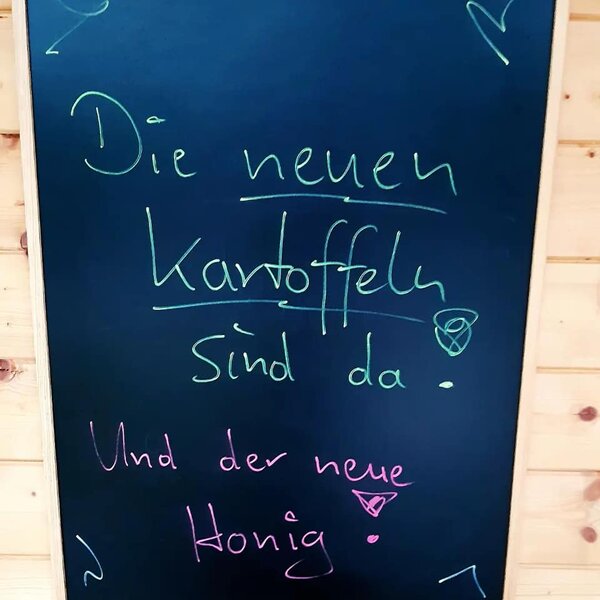 Die neuen
Kartoffeln
sind da!
Und der neue
Honig!